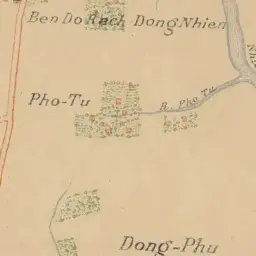 Ben Do Rach Dong Nhien
Pho-Tu
R. Pho Tu
Dong-Phu